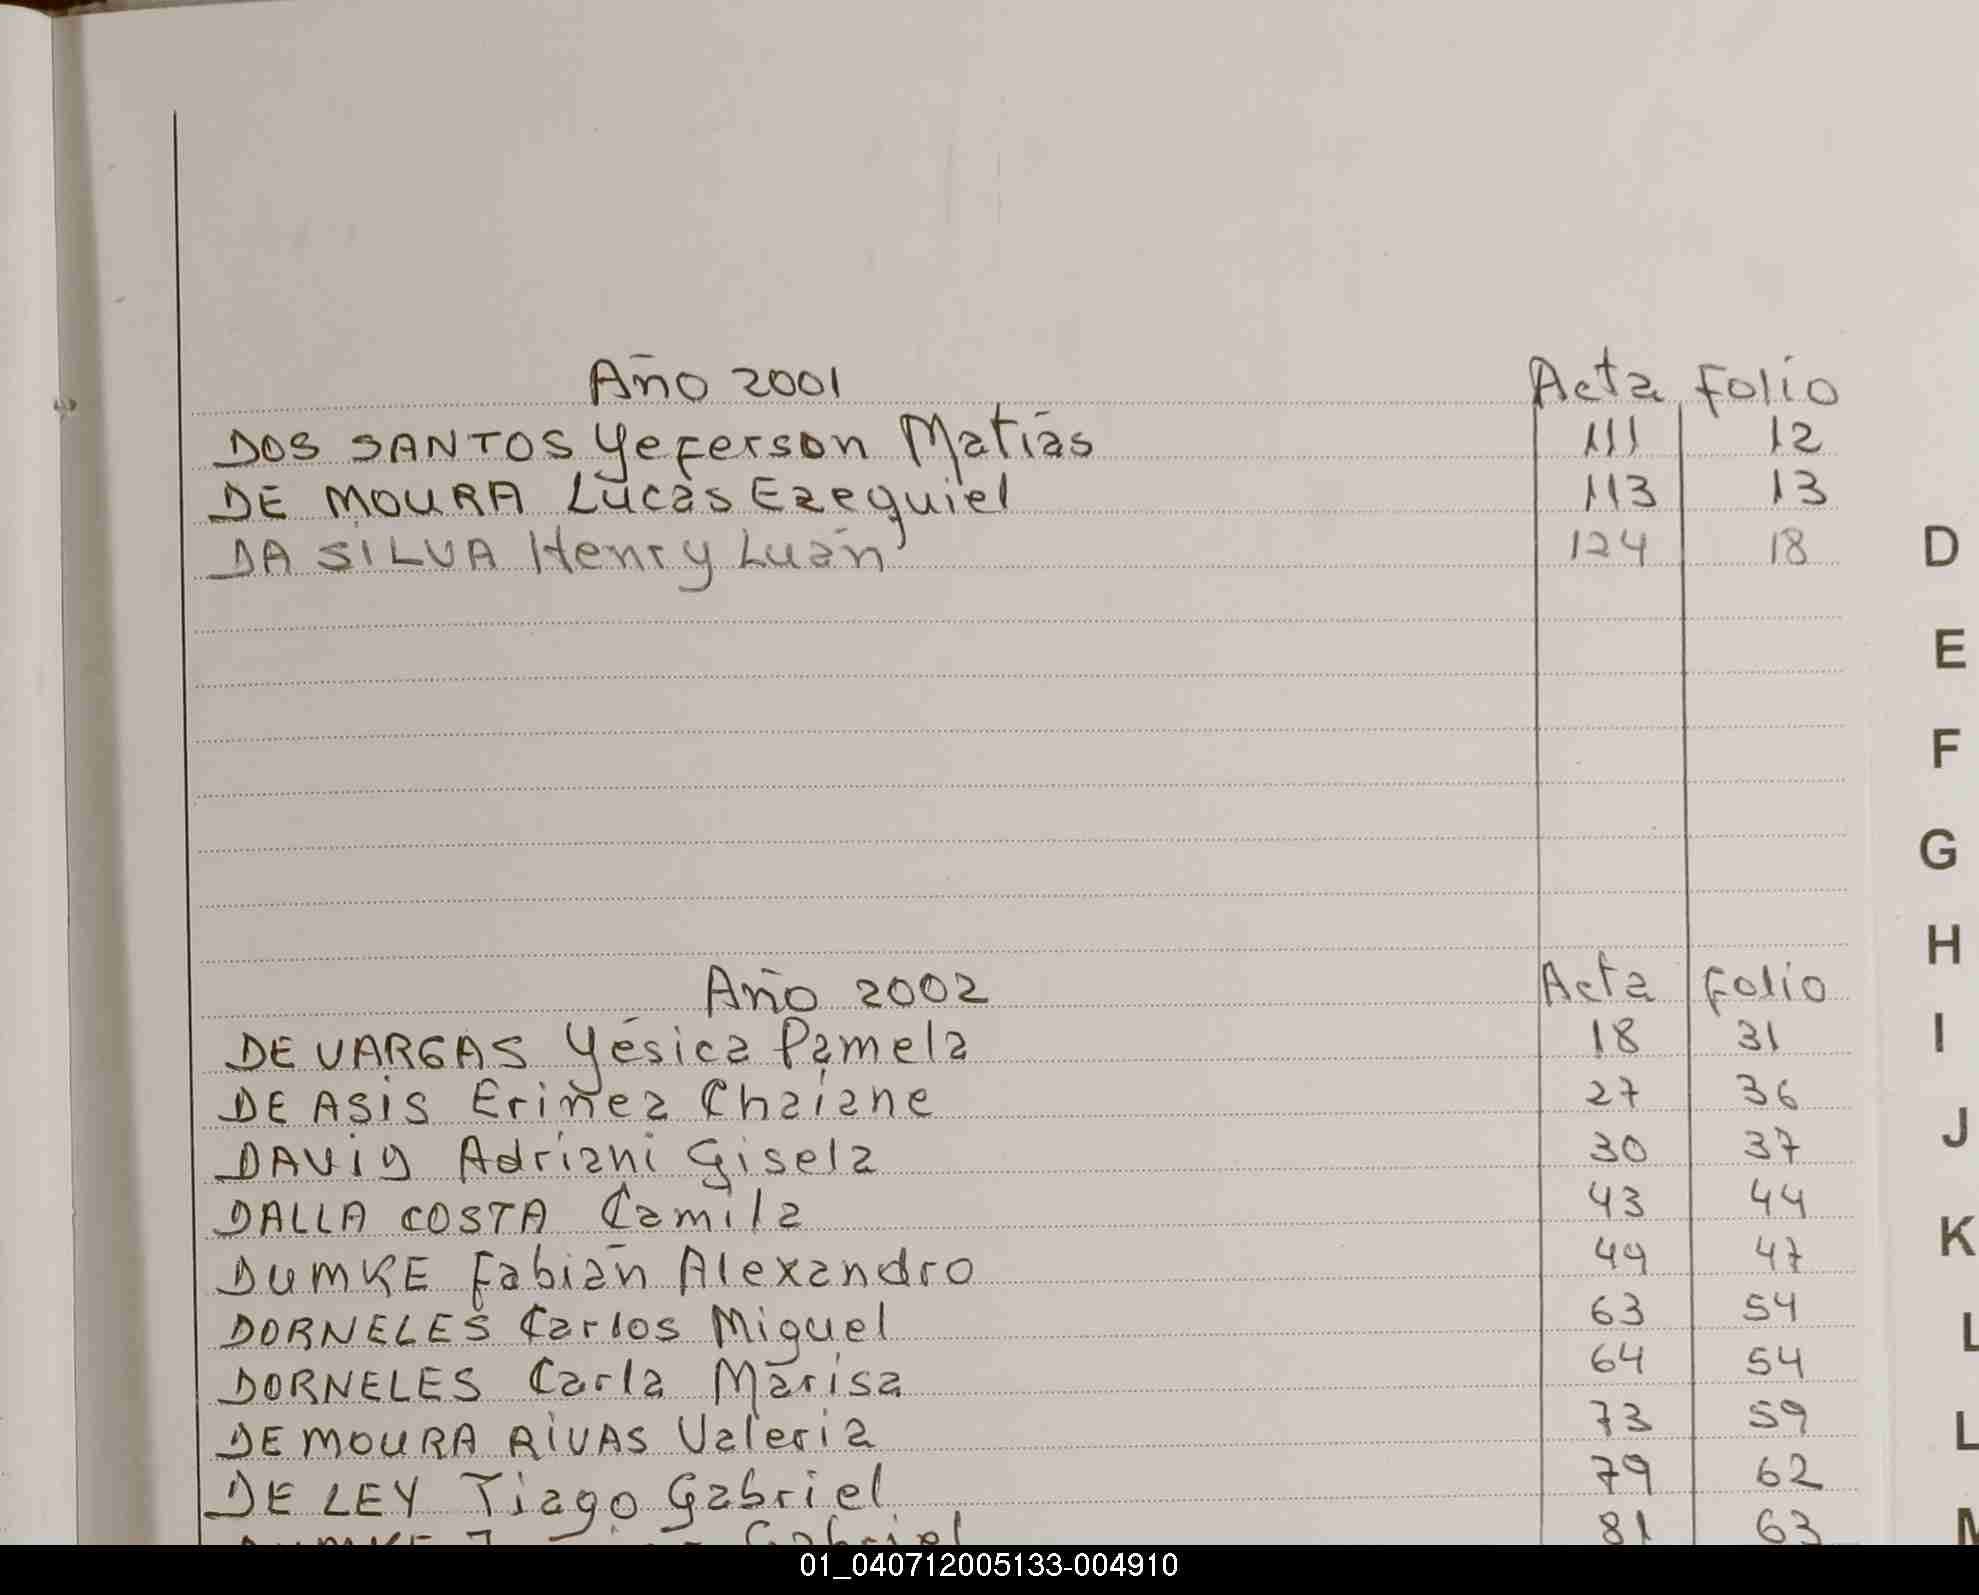 Año 2001 Acta Folio
DOS SANTOS Yeferson Matías 111 12
DE MOURA Lucas Ezequiel 113 13
DA SILVA Henry Luán 124 18
D
E
F
G
H
Año 2002 Acta Folio
I
DE VARGAS Yésica Pamela 18 31
DE ASIS Erinea Chaiane 27 36
J
DAVID Adriani Gisela 30 37
DALLA COSTA Camila 43 44
K
DUMKE Fabián Alexandro 49 47
DORNELES Carlos Miguel 63 54
L
DORNELES Carla Marisa 64 54
DE MOURA RIVAS Valeria 73 59
L
DE LEY Tiago Gabriel 79 62
DUMKE Gabriel 81 63
M
01_040712005133-004910